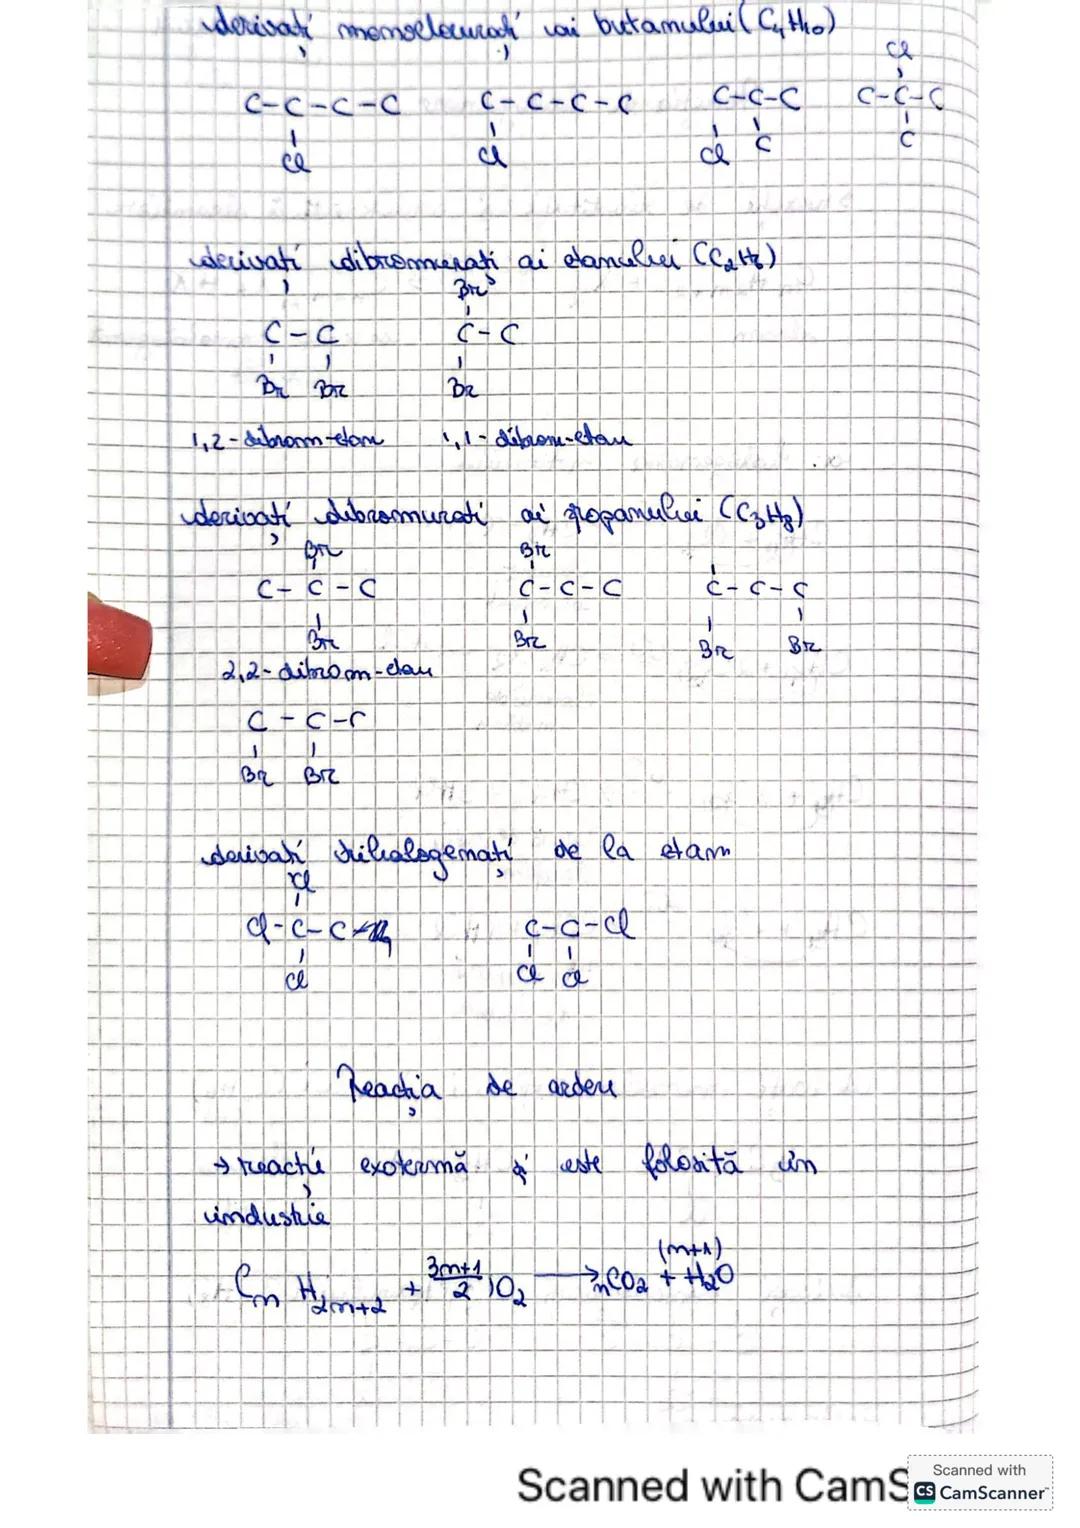 derivați monoclorurați ai butanului (C4H10)
Cl
C-C-C-C C-C-C-C C-C-C C-C-C
Cl Cl Cl C C
derivați dibromurați ai etanului (C2H6)
Br
C-C C-C
Br Br Br
1,2-dibrom-etan 1,1-dibrom-etan
derivați dibromurati ai propanului (C3H8)
Br Br
C-C-C C-C-C C-C-C
Br Br Br Br
2,2-dibrom-etan
C-C-C
Br Br
derivați trihalogenați de la etan
Cl
Cl-C-C C-C-Cl
Cl Cl Cl
Reacția de ardere
→ reacție exotermă și este folosită în
industrie
(n+1)
CnH2n+2 + 3n+1/2 )O2 → nCO2 + H2O
Scanned with CamS
Scanned with
CS CamScanner